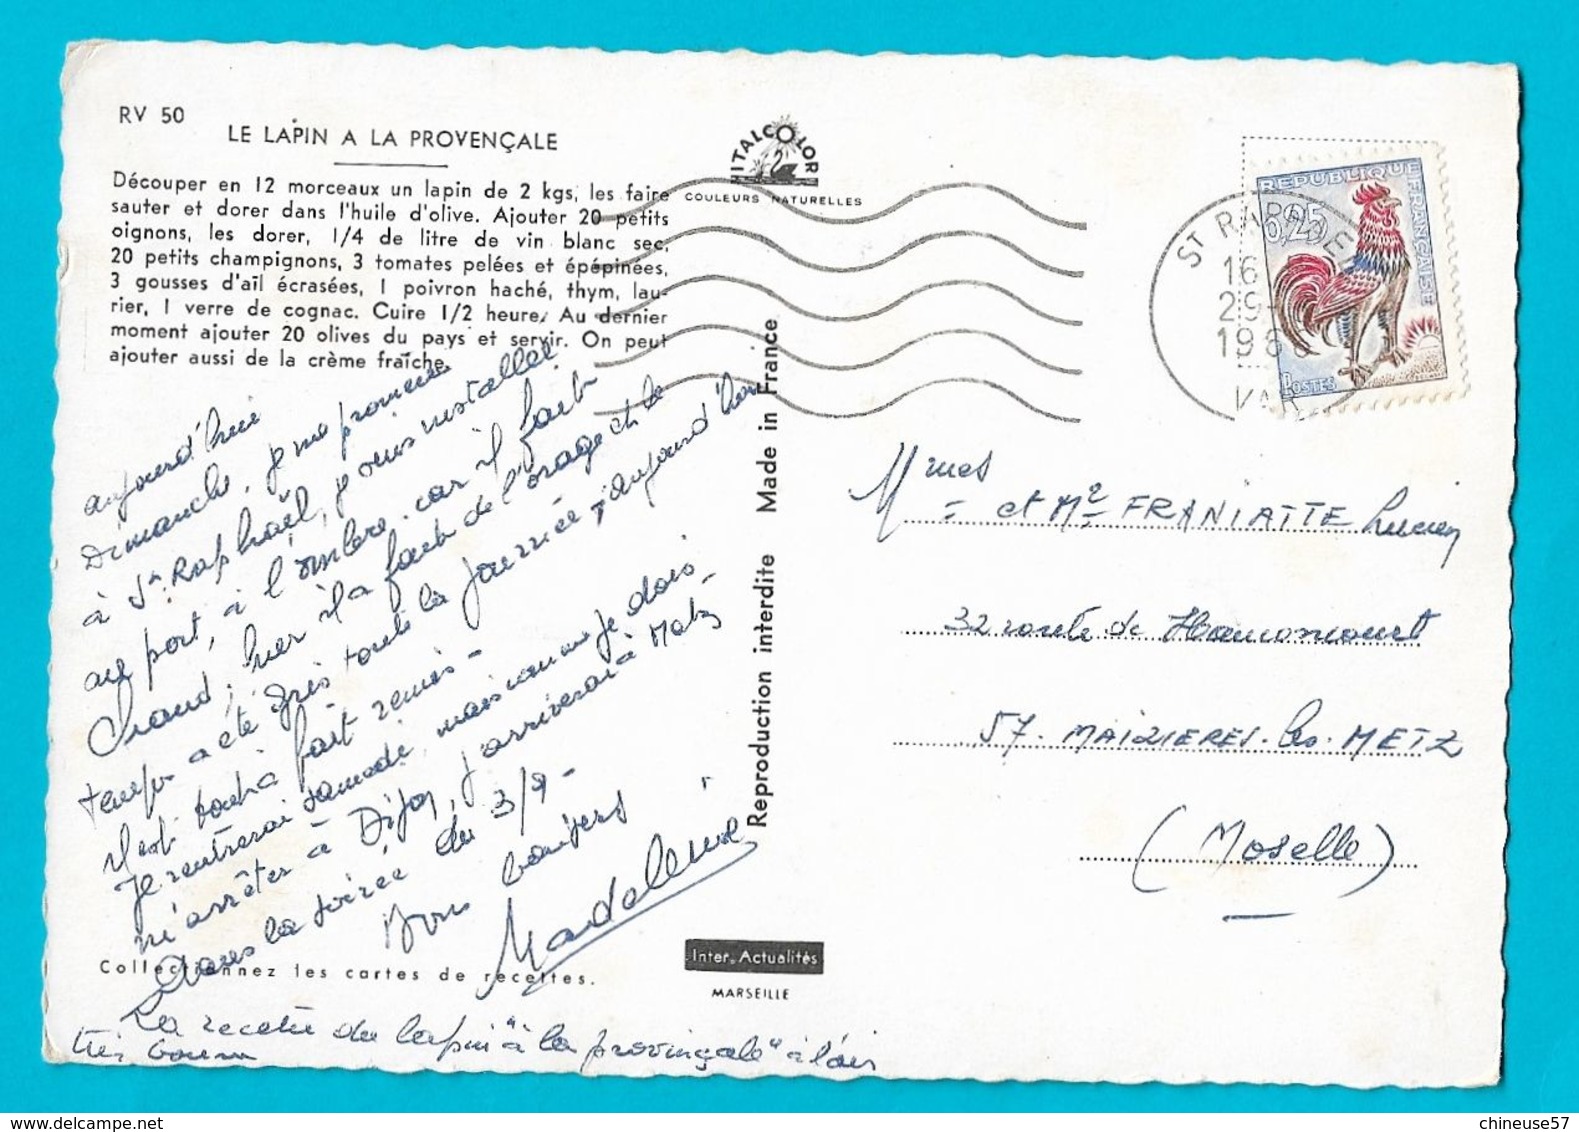 RV 50
LE LAPIN A LA PROVENÇALE
Découper en 12 morceaux un lapin de 2 kgs, les faire
sauter et dorer dans l'huile d'olive. Ajouter 20 petits
oignons, les dorer, 1/4 de litre de vin blanc sec,
20 petits champignons, 3 tomates pelées et épépinées,
3 gousses d'aïl écrasées, 1 poivron haché, thym, lau-
rier, 1 verre de cognac. Cuire 1/2 heure. Au dernier
moment ajouter 20 olives du pays et servir. On peut
ajouter aussi de la crème fraîche.
aujourd'hui
Dimanche, je me promène
à St. Raphaël, je suis installée
au port, à l'ombre, car il fait
chaud; hier il a fait de l'orage et le
temps a été gris toute la journée, aujourd'hui
il est tout à fait remis -
Je rentrerai samedi, mais comme je dois
m'arrêter à Dijon, j'arriverai à Metz
dans la soirée du 3/9 -
Bons baisers
Madeleine
Collectionnez les cartes de recettes.
La recette du lapin "à la provinçale" a l'air
très bonne
ITALCOLOR
COULEURS NATURELLES
Reproduction interdite Made in France
Inter-Actualités
MARSEILLE
ST RAPHAEL
16
29
196
VAR
REPUBLIQUE FRANÇAISE
0,25
POSTES
Mmes
et Mr FRANIATTE Lucien
32 route de Hauconcourt
57. MAIZIERES-les-METZ
(Moselle)
chineuse57